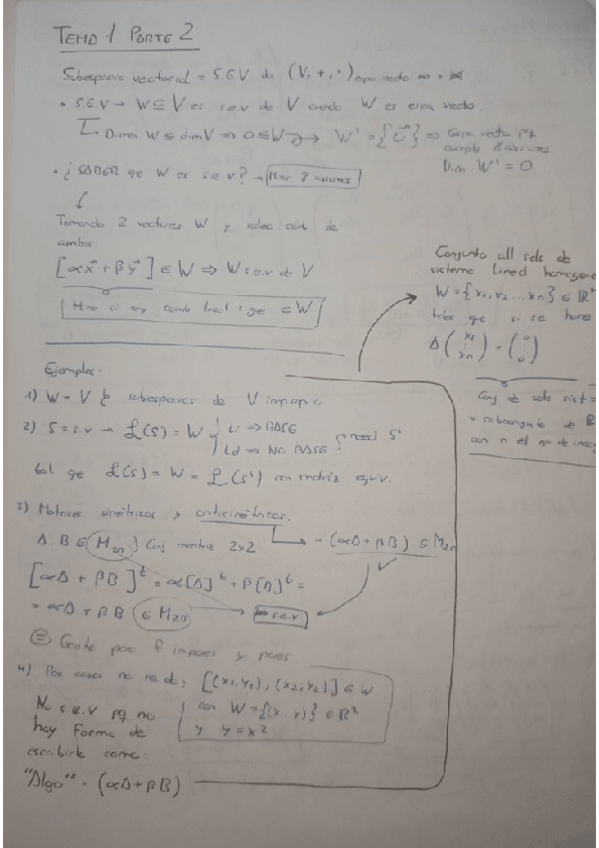 TEMA 1 PARTE 2
Subespacio vectorial = S.E.V de (V, +, ·) espa vecto
• S.E.V → W ⊆ V es s.e.v de V cuando W es espa vecto.
Dimen W ≤ dim V ⇒ 0 ∈ W → W' = {0⃗} ⇒ Espa vecto pq
cumple 8 axiomas
Dim W' = 0
• ¿SABER que W es s.e.v? → Mirar 8 axiomas
Tomando 2 vectores W y comb de
ambos:
[αx⃗ + βy⃗] ∈ W ⇒ W s.e.v de V
Mirar si comb lineal sigue ∈ W
Conjunto all sols de
sistema lineal homogeneo
W = {x₁, x₂ ... xn} ∈ Rⁿ
que si se hace
A (x₁ ⋮ xn) = (0 ⋮ 0)
Conj de sols sist =
= de R
con n el nº de incog
Ejemplos:
1) W = V subespacios de V impropio
2) S = s.v → L(S) = W { Li ⇒ BASE
Ld ⇒ No BASE } S'
tal que L(S) = W = L(S') con matriz equiv.
3) Matrices simétricas y antisimétricas.
A, B ∈ M₂ₙ Conj matriz 2x2 → - (αA + βB) ∈ M₂ₙ
[αA + βB]ᵗ = α[A]ᵗ + β[B]ᵗ =
= αA + βB ∈ M₂ₙ s.e.v
= para f impares y pares
4) no : [(x₁, y₁), (x₂, y₂)] ∈ W
con W = {(x, y)} ∈ R²
y y = x²
No s.e.v pq no
hay forma de
escribirlo como:
"Algo" = (αA + βB)